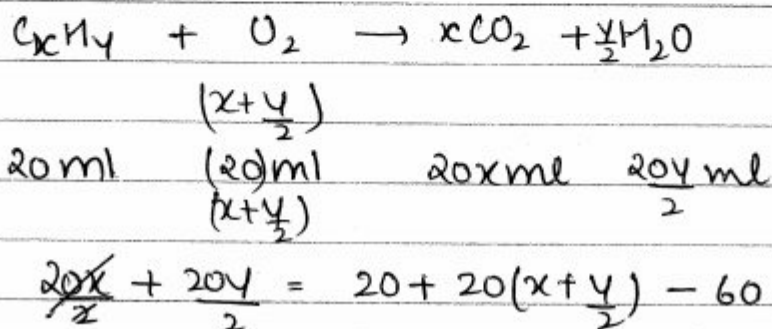 CxHy + O2 → xCO2 + y/2 H2O
(x+y/2)
20 ml (20)ml 20xml 20y/2 ml
(x+y/2)
20x/2 + 20y/2 = 20 + 20(x+y/2) - 60